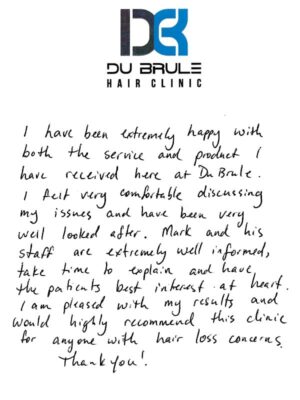 DU BRULE
HAIR CLINIC
I have been extremely happy with
both the service and product I
have received here at Du Brule.
I felt very comfortable discussing
my issues and have been very
well looked after. Mark and his
staff are extremely well informed,
take time to explain and have
the patients best interest at heart.
I am pleased with my results and
would highly recommend this clinic
for anyone with hair loss concerns.
Thank you!